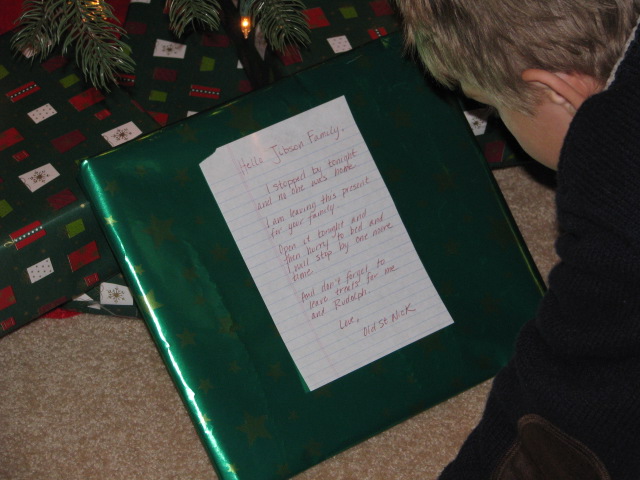 Hello Jobson Family,
I stopped by tonight
and no one was home.
I am leaving this present
for your family.
Open it tonight and
then hurry to bed and
I will stop by one more
time.
And don't forget to
leave treats for me
and Rudolph.
Love,
Old St Nick